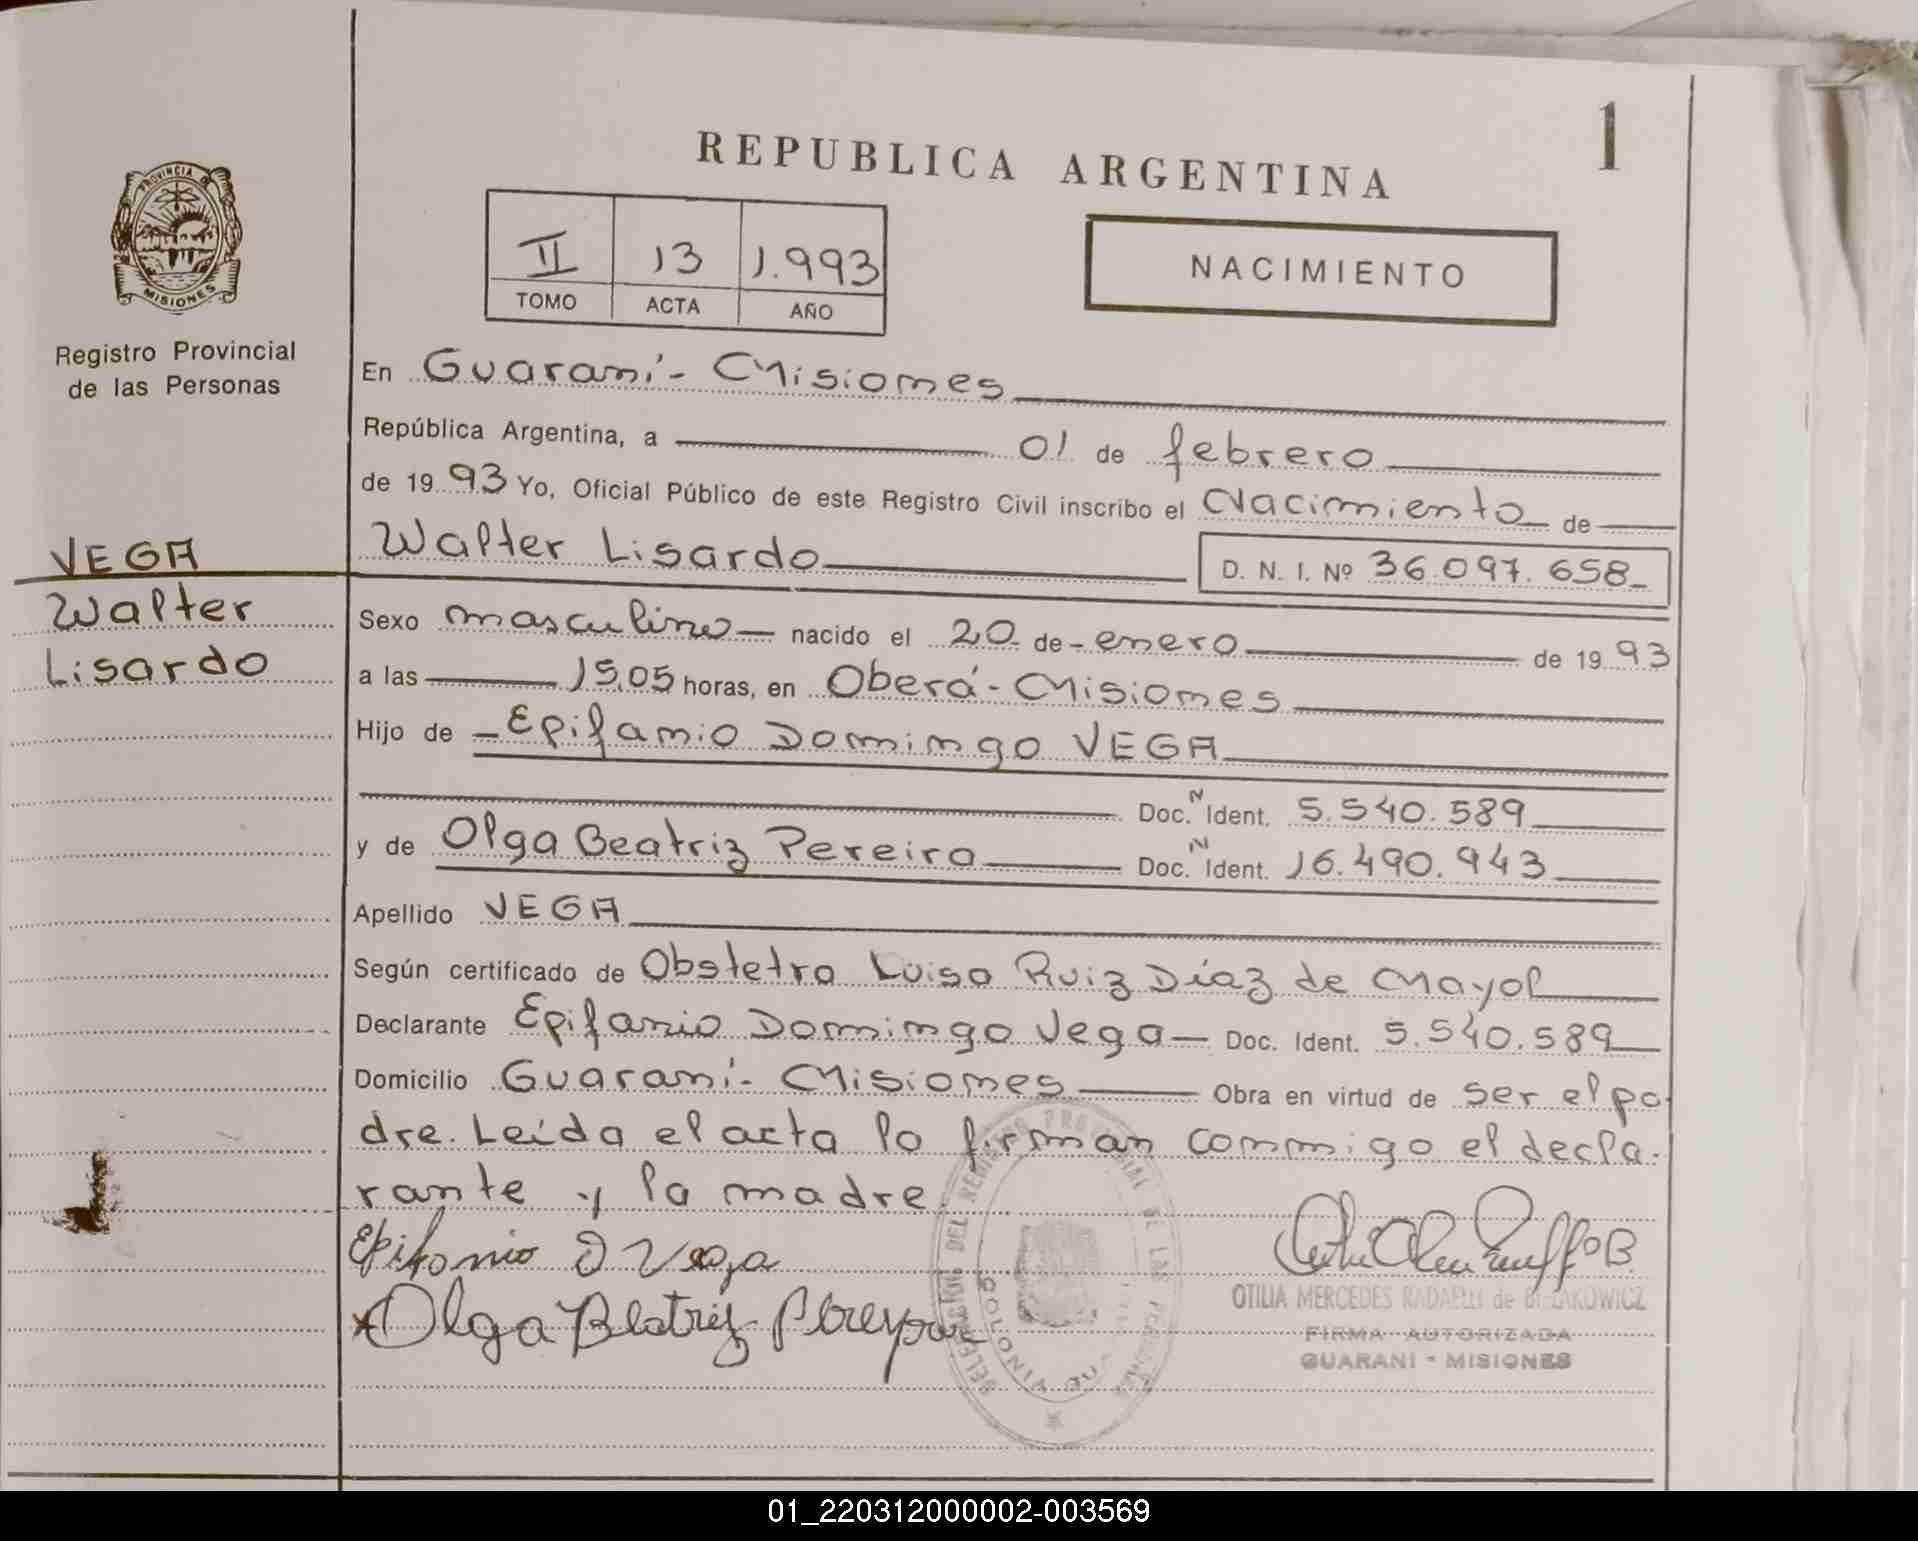 REPUBLICA ARGENTINA
1
PROVINCIA DE
MISIONES
Registro Provincial
de las Personas
II 13 1.993
TOMO ACTA AÑO
NACIMIENTO
En Guaraní - Misiones
República Argentina, a 01 de febrero
de 1993 Yo, Oficial Público de este Registro Civil inscribo el Nacimiento de
VEGA
Walter
Lisardo
Walter Lisardo D. N. I. Nº 36.097.658
Sexo masculino nacido el 20 de enero de 1993
a las 15,05 horas, en Oberá - Misiones
Hijo de Epifanio Domingo VEGA
Doc. N Ident. 5.540.589
y de Olga Beatriz Pereira Doc. N Ident. 16.490.943
Apellido VEGA
Según certificado de Obstetra Luisa Ruiz Díaz de Mayol
Declarante Epifanio Domingo Vega Doc. Ident. 5.540.589
Domicilio Guaraní - Misiones Obra en virtud de ser el pa-
dre. Leída el acta la firman conmigo el decla-
rante y la madre
Epifanio D Vega
Olga Beatriz Pereyra
DEL REGISTRO PROVINCIAL DE LAS PERSONAS
OTILIA MERCEDES RADAELLI de
FIRMA AUTORIZADA
GUARANI - MISIONES
01_220312000002-003569